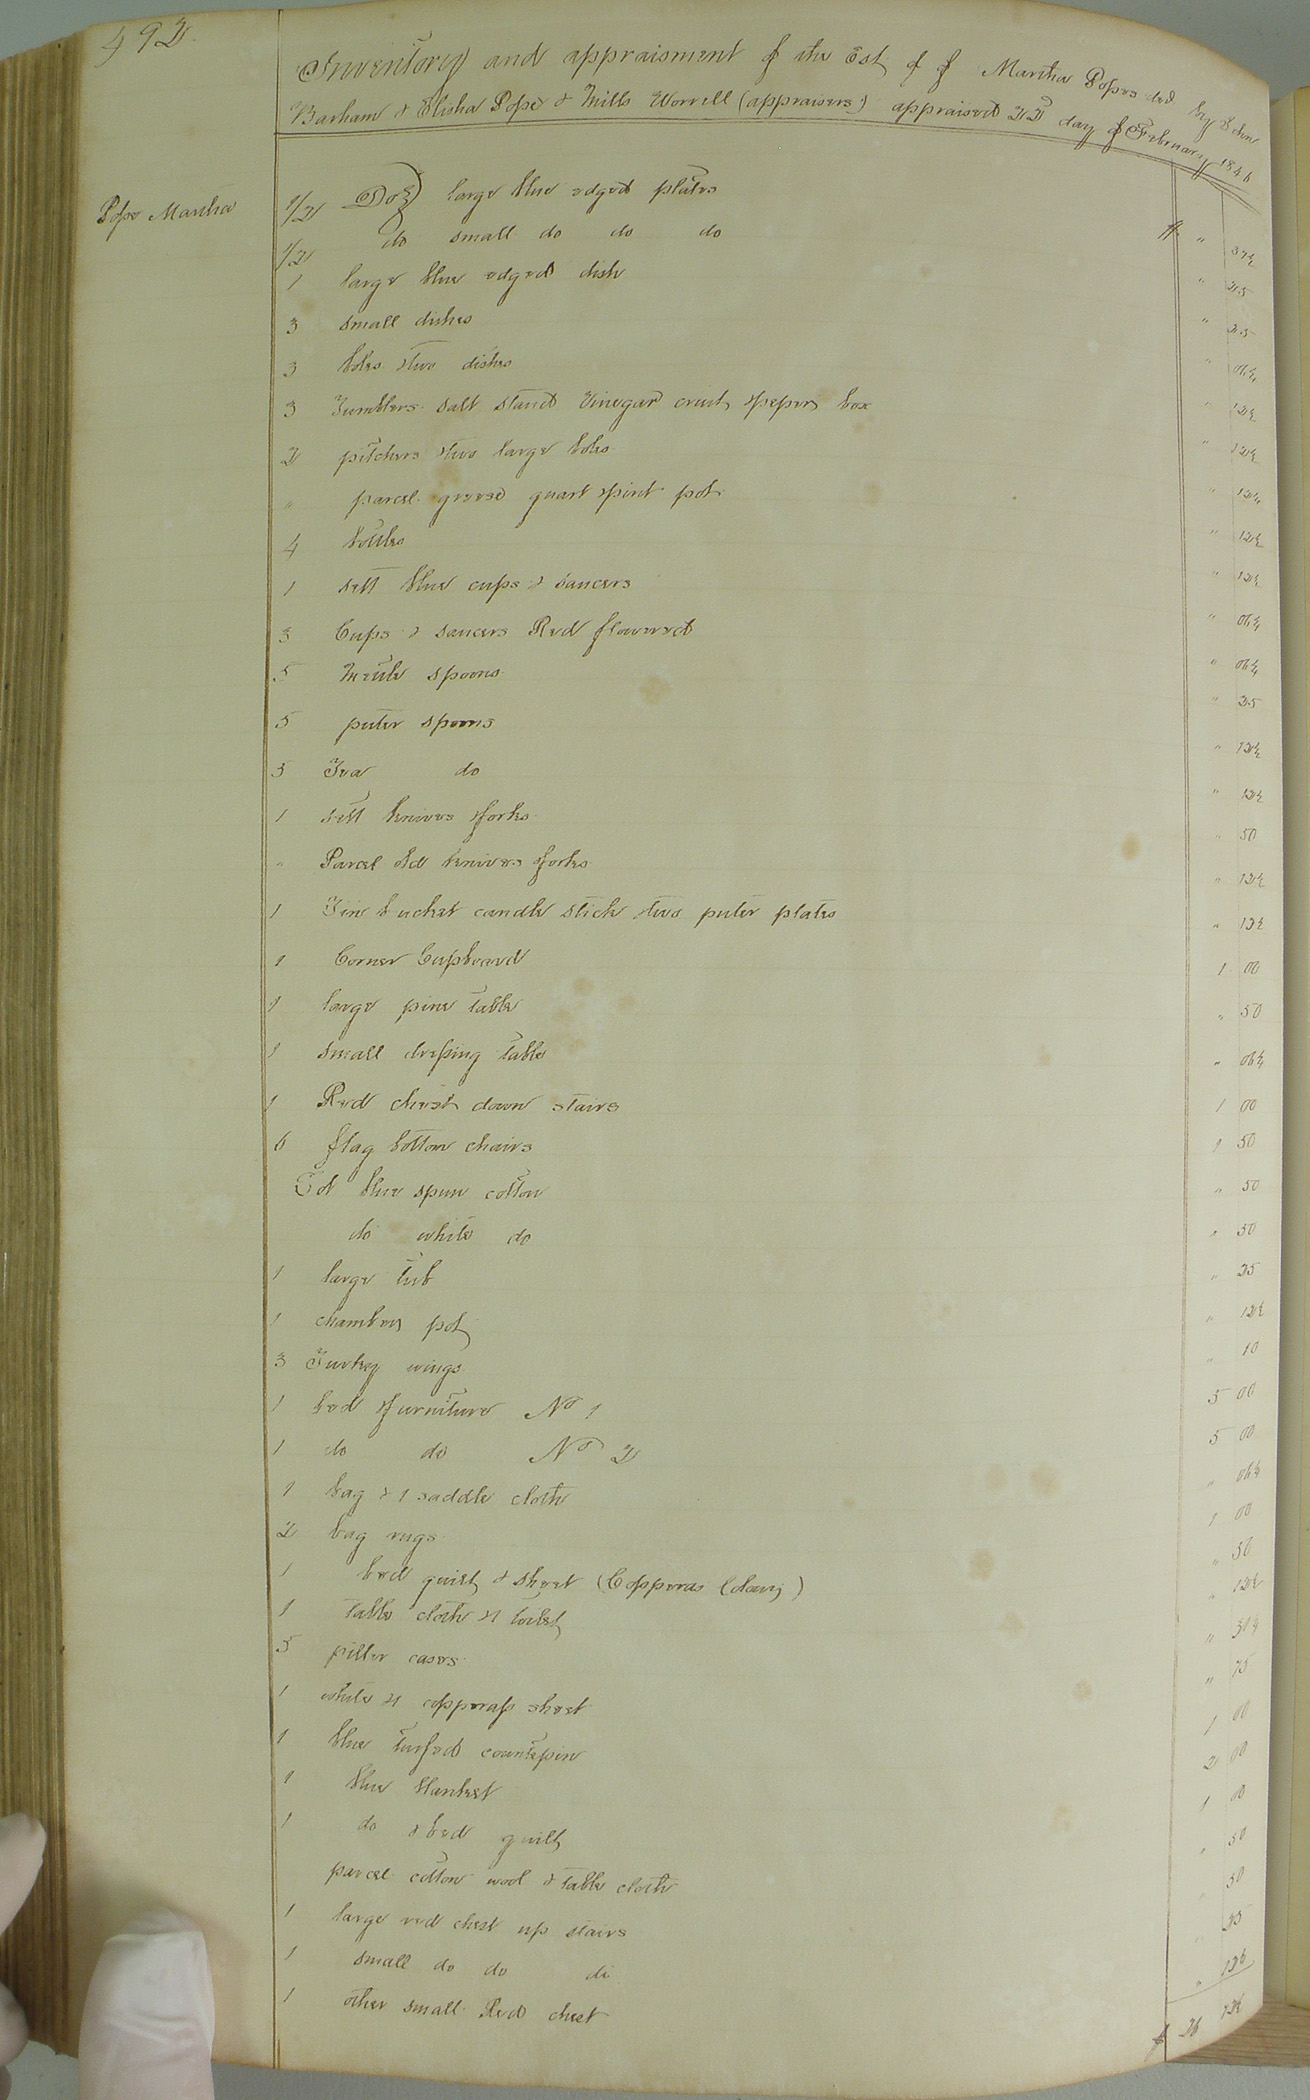 492
Inventory and appraisment of the Est of Martha Popes decd by Eden
Barham & Elisha Pope & Mills Worrell (appraisers) appraised 22 day of February 1846
Pope Martha
1/2 Doz large blue edged plates $ " 37½
1/2 do small do do do " 25
1 large blue edged dish " 25
3 small dishes " 06¼
3 boles & two dishes " 12½
3 Tumblers salt stand Vinegar cruit & peper box " 12½
2 pitchers & two large boles " 12½
" parcel greese quart & pint pot " 12½
4 bottles " 12½
1 sett blue cups & saucers " 06¼
3 Cups & saucers Red flowered " 06¼
5 Mettle spoons " 25
5 puter spoons " 12½
5 Tea do " 12½
1 sett knives & forks " 50
" Parcel old knives & forks " 12½
1 Tin bucket candle stick & two puter plates " 12½
1 Corner Cupboard 1 00
1 large pine table " 50
1 small dressing table " 06¼
1 Red chest down stairs 1 00
6 flag bottom chairs 1 50
Lot blue spun cotton " 50
do white do " 50
1 large tub " 25
1 chamber pot " 12½
3 Turkey wings " 10
1 bed & furniture No 1 5 00
1 do do No 2 5 00
1 bag & 1 saddle cloth " 06¼
2 bag rugs 1 00
1 bed quilt & sheet (Copperas ) " 50
1 table cloth & 1 toilet " 12½
5 piller cases " 31¼
1 white & 1 copperass sheet " 75
1 blue tufred countepin 1 00
1 blue blanket 2 00
1 do & bed quilt 1 00
parcel cotton wool & table cloth " 50
1 large red chest up stairs " 50
1 small do do do " 25
1 other small Red chest " 12½
$ 26 12½